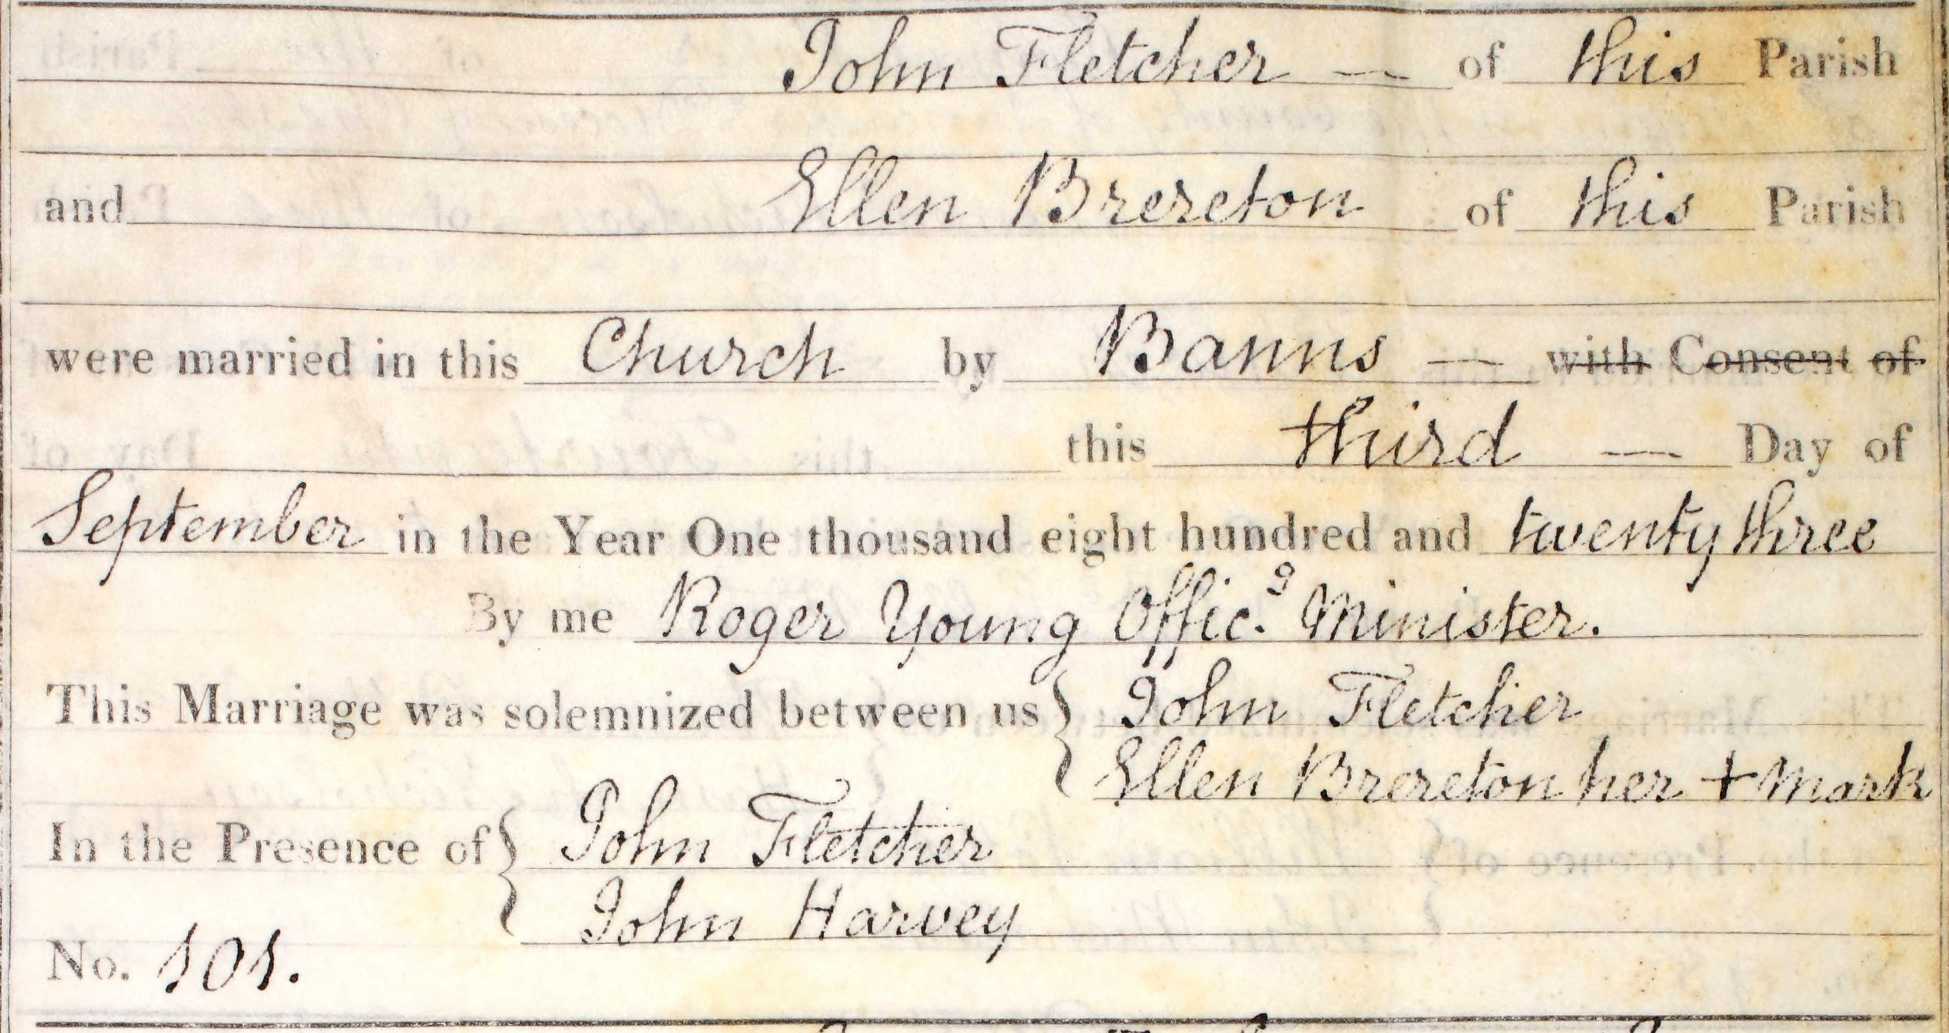 John Fletcher — of this Parish
and Ellen Brereton of this Parish
were married in this Church by Banns — with Consent of
this third — Day of
September in the Year One thousand eight hundred and twenty three
By me Roger Young Offic.g Minister.
This Marriage was solemnized between us { John Fletcher
Ellen Brereton her + mark
In the Presence of { John Fletcher
John Harvey
No. 101.